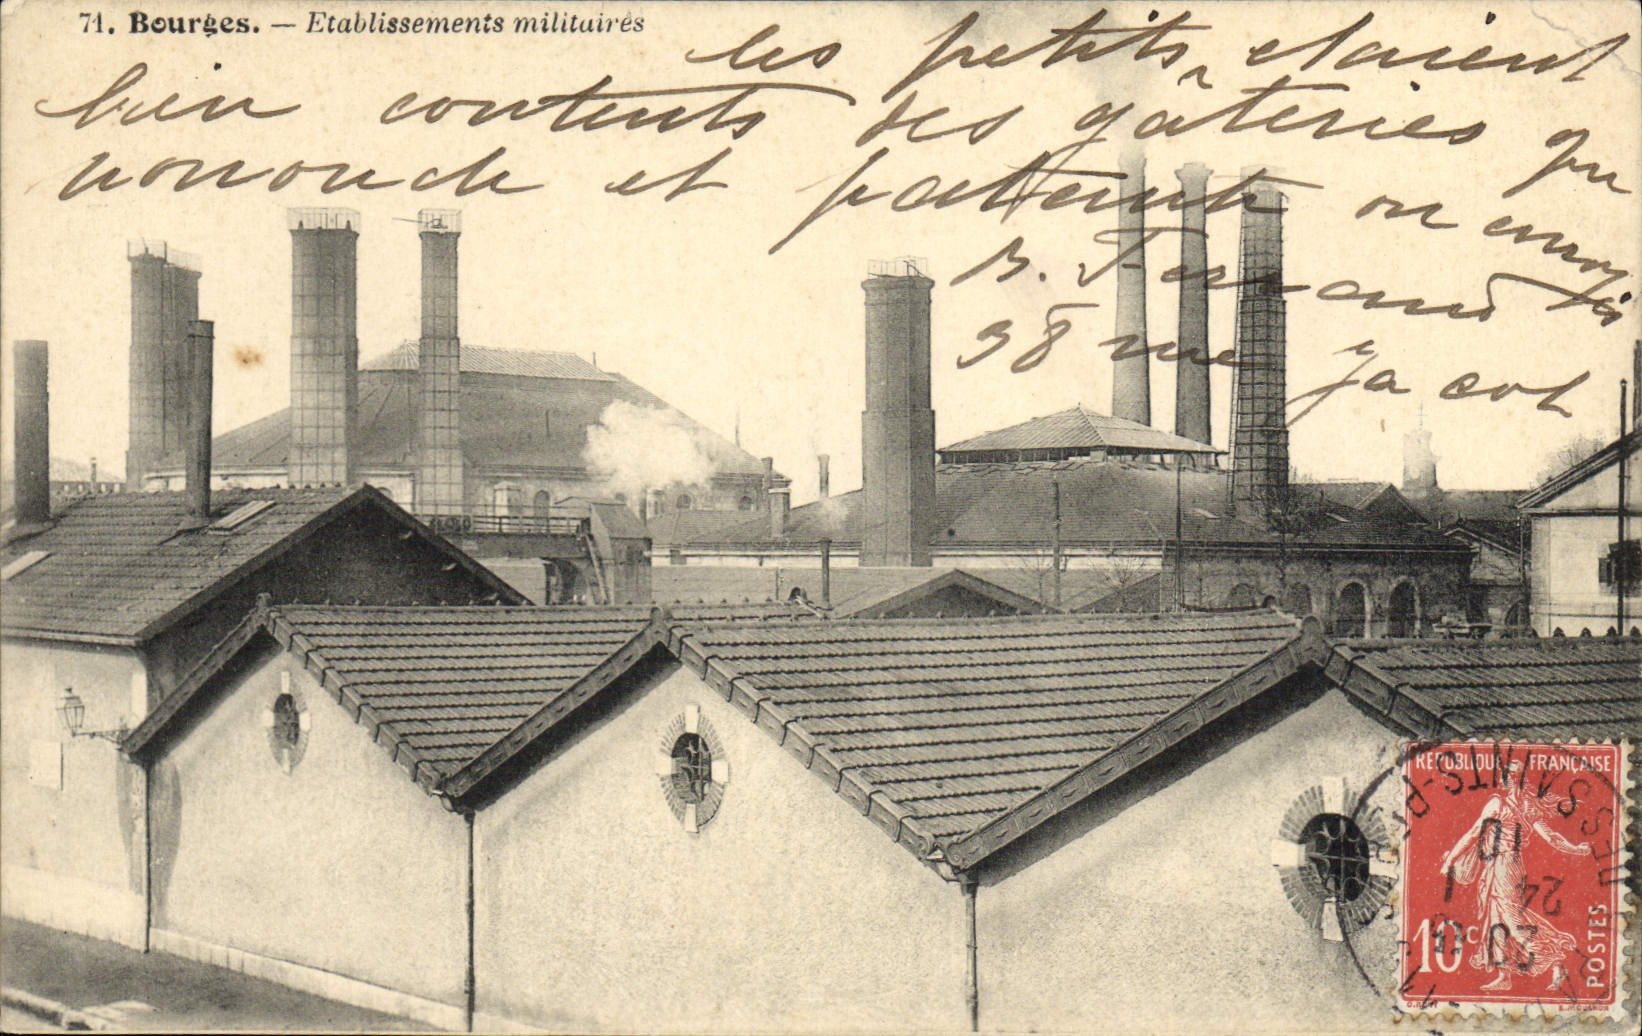 71. Bourges. — Etablissements militaires
les petits etaient
bien contents des gâteries qu
nonouch et patient on envoy
B. Fernand
98 rue Jacob
REPUBLIQUE FRANÇAISE
10c
POSTES
SAINTS-P
10
24
20